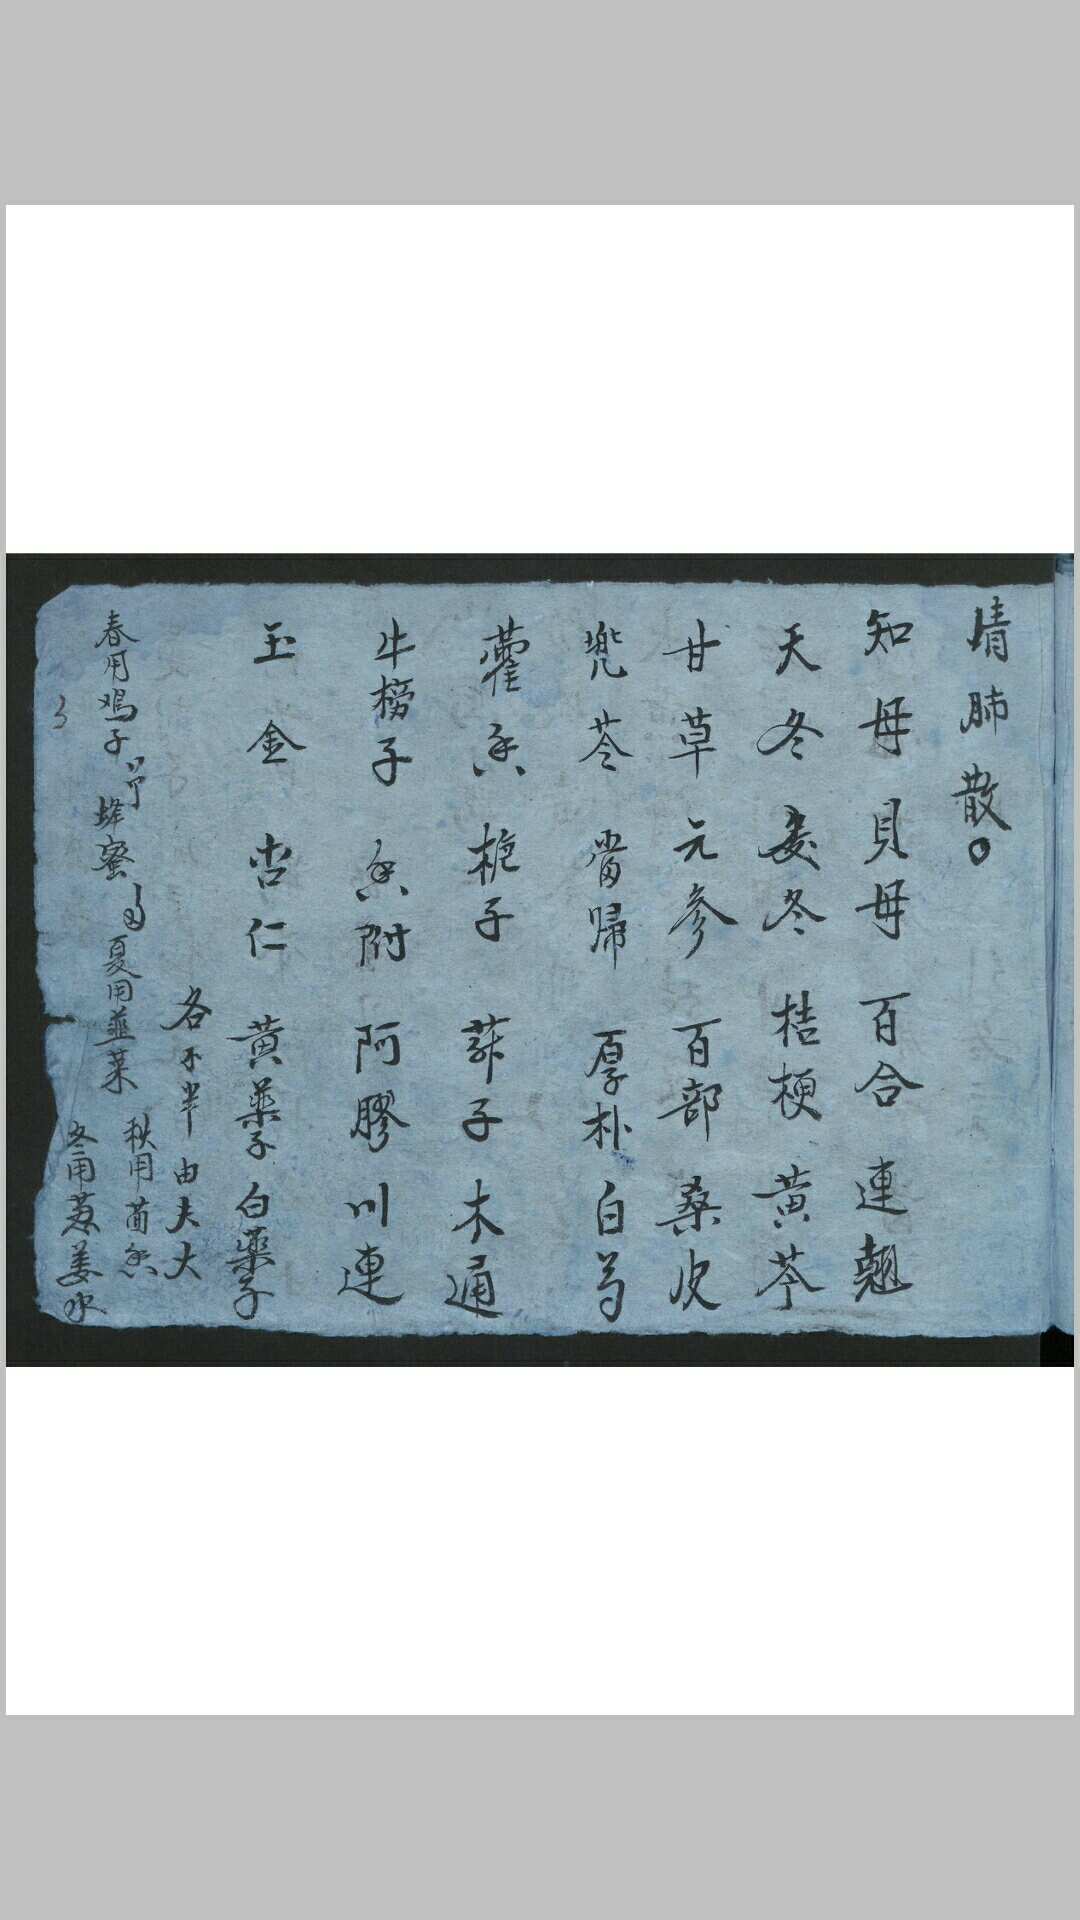 清肺散〇
知母 貝母 百合 連翹
天冬 麦冬 桔梗 黄芩
甘草 元参 百部 桑皮
兜苓 當歸 厚朴 白芍
藿香 梔子 蘇子 木通
牛榜子 香附 阿膠 川連
玉金 杏仁 黄藥子 白藥子
各 半 由夫大
春用鸡子 蜂蜜 夏用韮菜
秋用茴香
冬用葱姜水